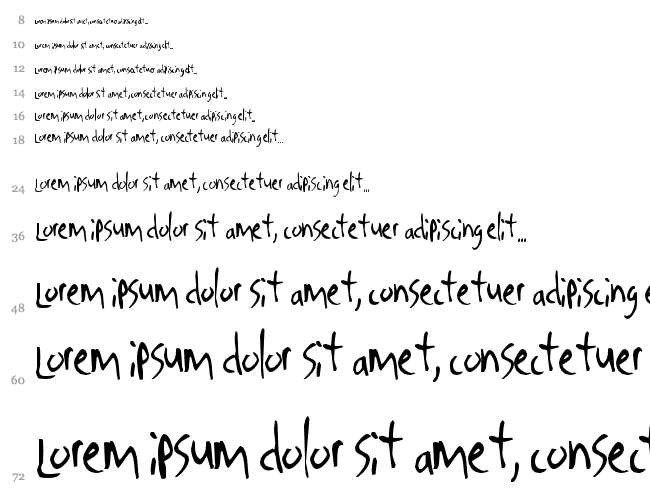 8 Lorem ipsum dolor sit amet, consectetuer adipiscing elit...
10 Lorem ipsum dolor sit amet, consectetuer adipiscing elit...
12 Lorem ipsum dolor sit amet, consectetuer adipiscing elit...
14 Lorem ipsum dolor sit amet, consectetuer adipiscing elit...
16 Lorem ipsum dolor sit amet, consectetuer adipiscing elit...
18 Lorem ipsum dolor sit amet, consectetuer adipiscing elit...
24 Lorem ipsum dolor sit amet, consectetuer adipiscing elit...
36 Lorem ipsum dolor sit amet, consectetuer adipiscing elit...
48 Lorem ipsum dolor sit amet, consectetuer adipiscing e
60 Lorem ipsum dolor sit amet, consectetuer
72 Lorem ipsum dolor sit amet, consect